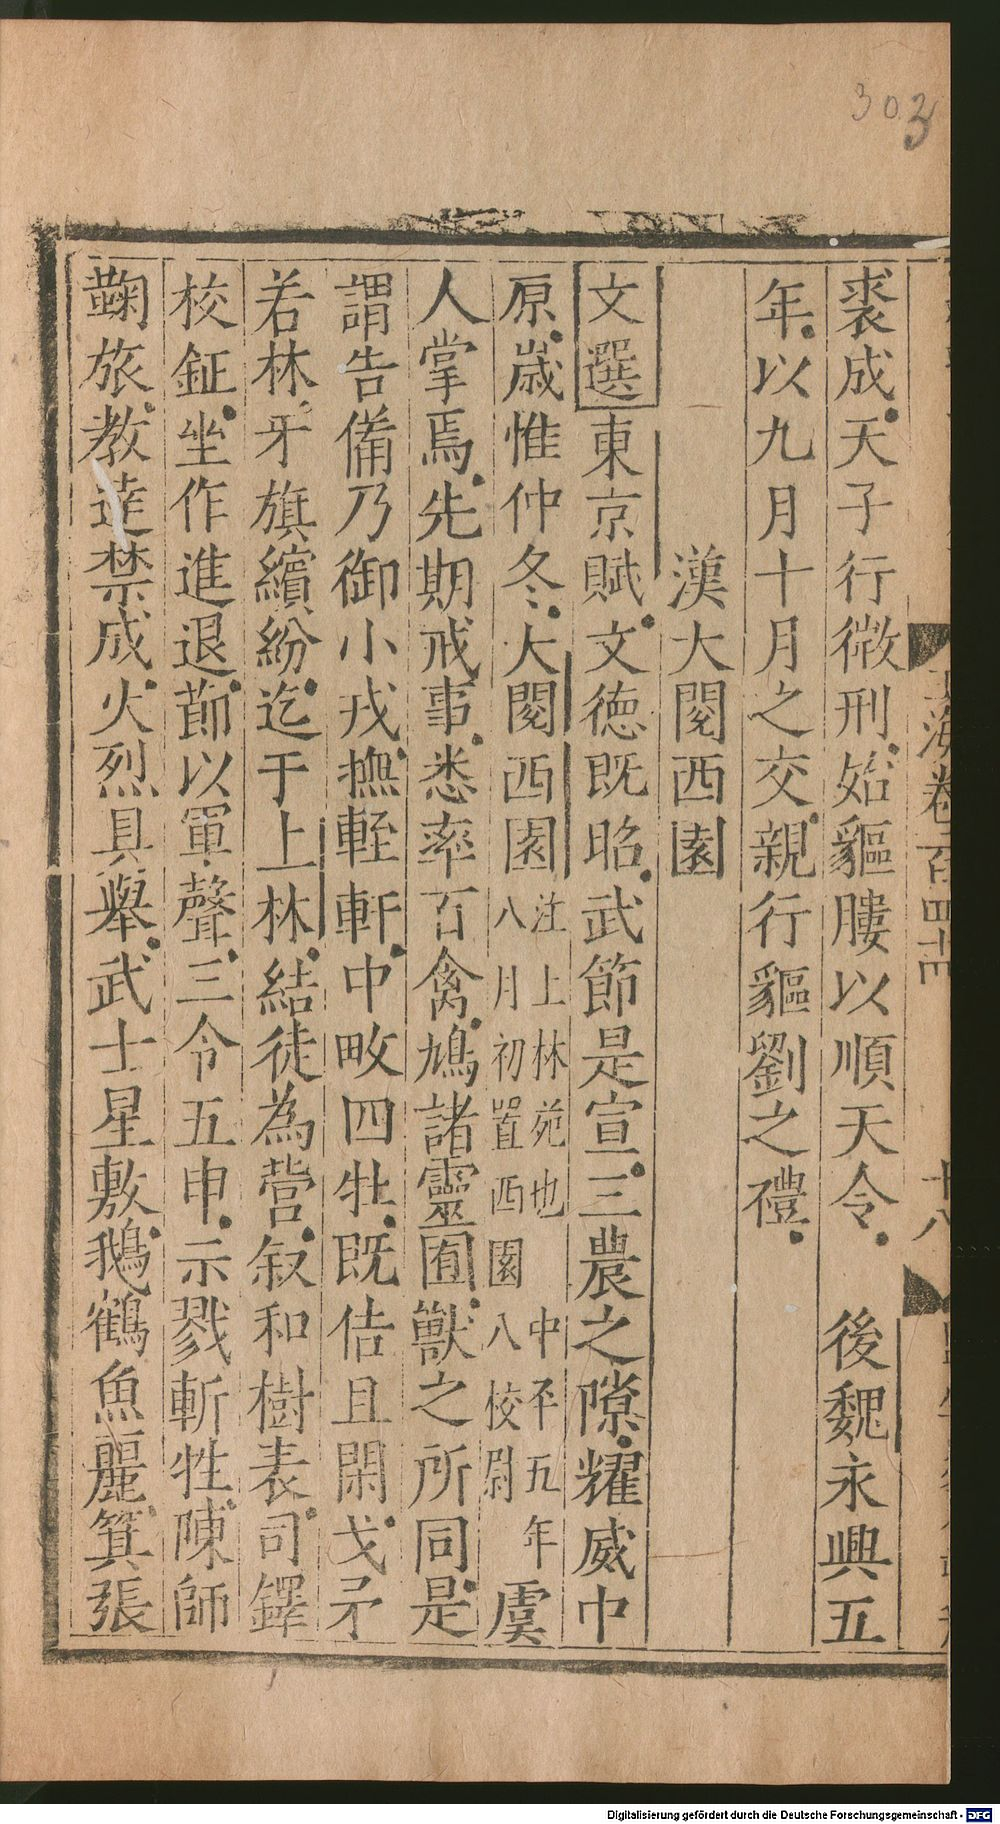 303
裘成天子行微刑始貙膢以順天令 後魏永興五
年以九月十月之交親行貙劉之禮
漢大閱西園
文選東京賦文德既昭武節是宣三農之隙耀威中
原歲惟仲冬大閱西園注上林苑也 中平五年八月初置西園八校尉虞
人掌焉先期戒事悉率百禽鳩諸靈囿獸之所同是
謂告備乃御小戎撫輕軒中畋四牡既佶且閑戈矛
若林牙旗繽紛迄于上林結徒為營叙和樹表司鐸
校鉦坐作進退節以軍聲三令五申示戮斬牲陳師
鞠旅教達禁成火烈具舉武士星敷鵝鶴魚麗箕張
玉海卷一百四十四
十八
Digitalisierung gefördert durch die Deutsche Forschungsgemeinschaft - DFG